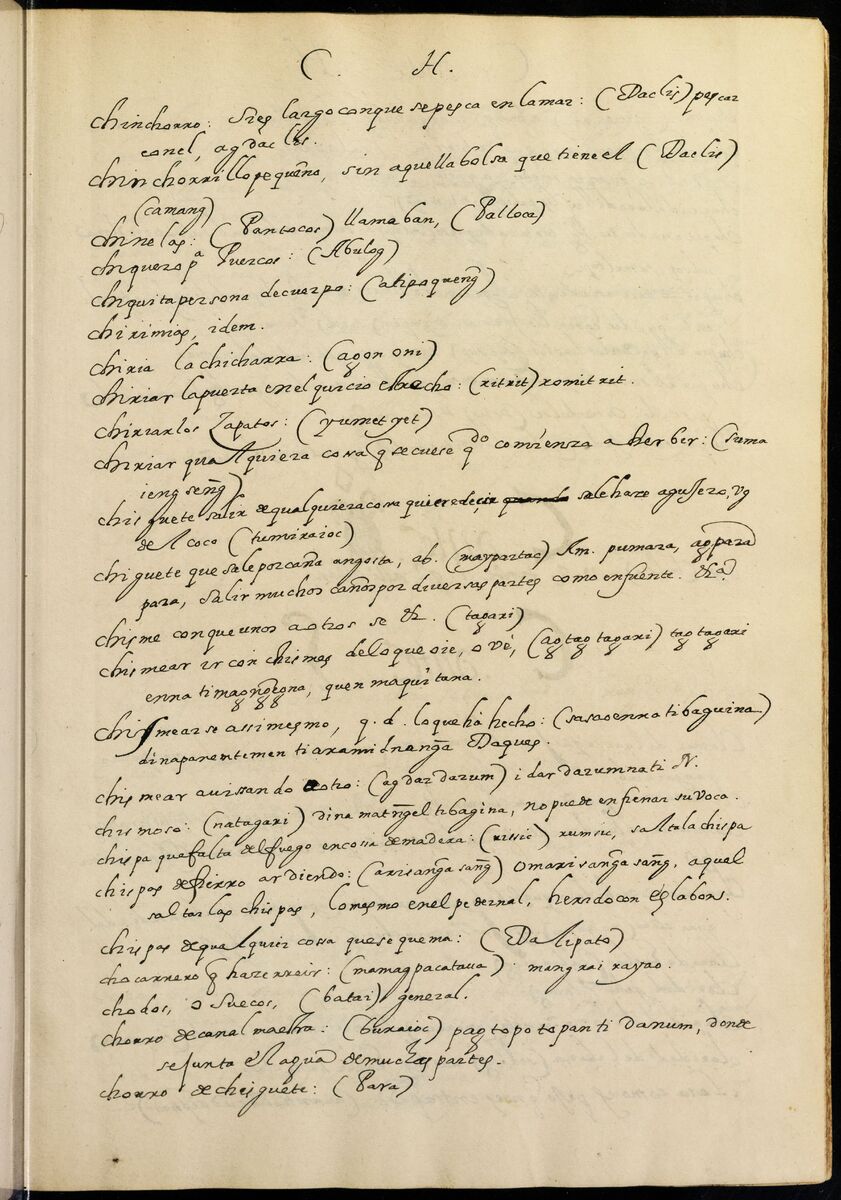 C. H.
chinchorro: si es largo con que se pesca en la mar: (Daclis) pescar
con el, agdaclis.
chinchorrillo pequeño, sin aquella bolsa que tiene el (Daclis)
(camang)
chinelas: (Pantocos) llamaban, (Palloca)
chiquero pª Puercos: (Abulog)
chiquita persona de cuerpo: (atipoqueng̃)
chirimias, idem.
chiria la chicharra: (agon oni)
chiriar la puerta en el quicio: (ritrit) romitrit.
chiriar los Zapatos: (yumetyet)
chiriar qualquiera cossa q̃ se cuese qdo comienza a herber: (suma
ieng seng̃)
chisguete salir de qualquiera cossa quiere decir sale haze agujero, vg
del coco (tumiraioc)
chiguete que sale por caña angosta, ab. (maypartac) Im. pumara, agpara
para, salir muchos caños por diversas partes como en fuente. &ª
chisme con que unos a otros se &. (tagari)
chismear ir con chismes de lo que oie, o vé, (agtag tagari) tag tagari
enna ti, quen maquitana.
chismearse assimesmo, q. d. lo que há hecho: (sasaoenna ti baguina)
dinapanentemen ti aramidnang̃a Daques.
chismear avissando a otro: (agdardarum) idardarumna ti N.
chismoso: (natagari) dina matng̃el ti bagina, no puede enfrenar su voca.
chispa que salta del fuego en cossa de madera: (rissic) rumsic, salta la chispa
chispas de hierro ardiendo: (arisang̃a sang̃) omarisang̃a sang̃, aquel
saltar las chispas, lo mesmo en el pedernal, herido con eslabon.
chispas de qualquier cossa que se quema: (Dalipato)
chocarrero q̃ haze rreir: (mamagpacataua) mangrairayao.
chodos, o suecos, (batai) general.
chorro de canal maestra: (buraioc) pagtopotopan ti danum, donde
se junta el agua de muchas partes.
chorro de chisguete: (Para)